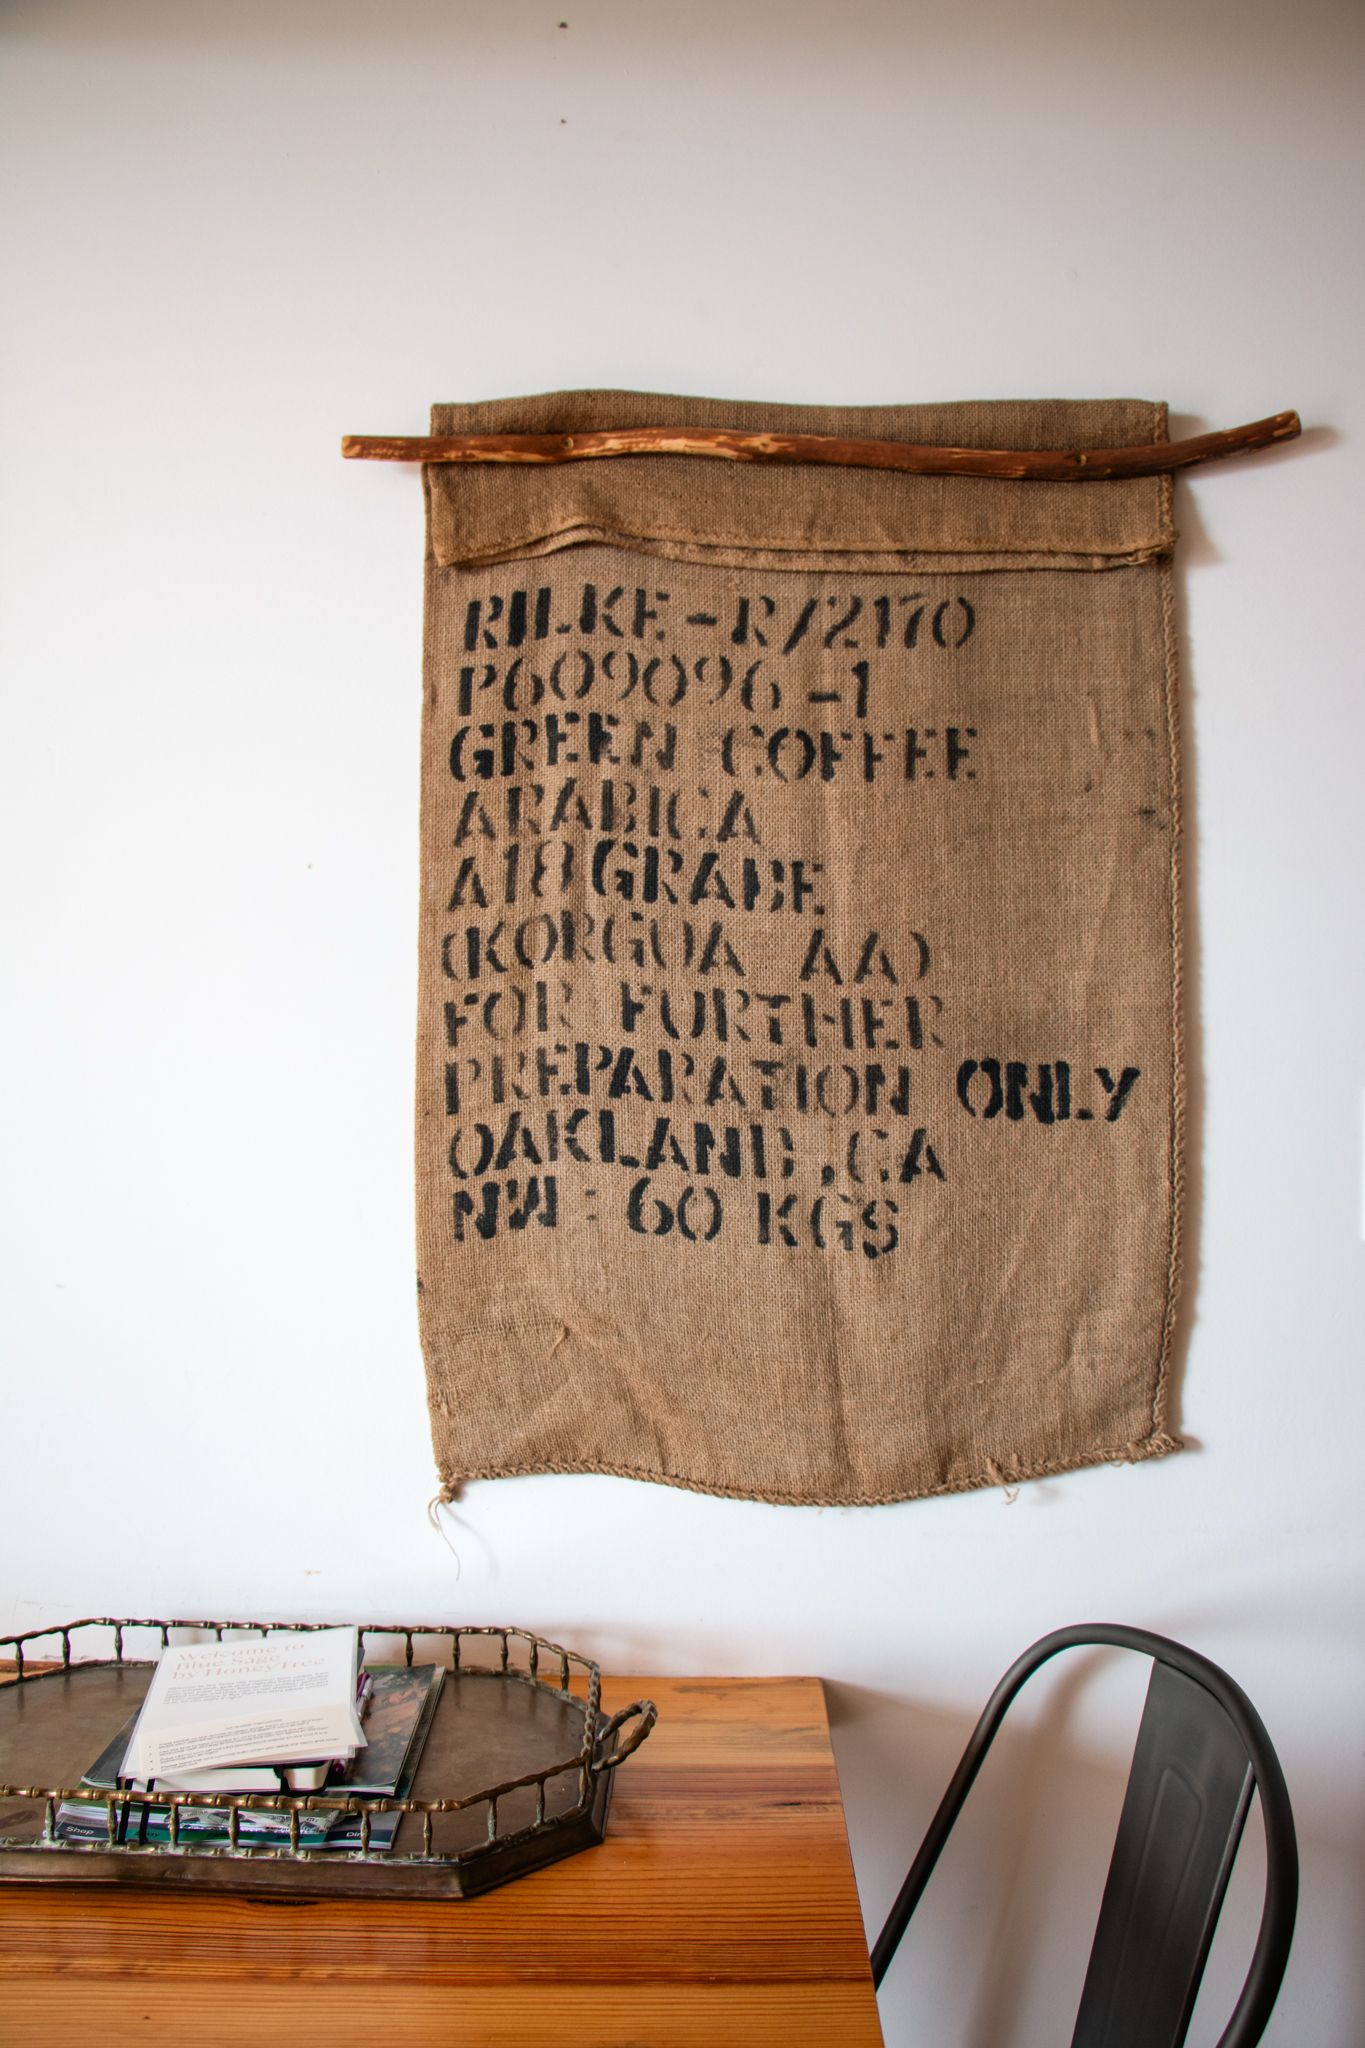 RILKE - R/2170
P609096 -1
GREEN COFFEE
ARABICA
A18 GRADE
(KORGOA AA)
FOR FURTHER
PREPARATION ONLY
OAKLAND, CA
NW: 60 KGS
Welcome to
Blue Sage
by HoneyTree
Shop